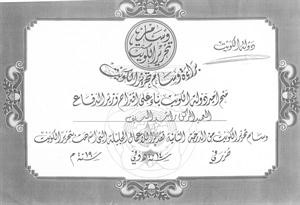 دولة الكويت
وسام تحرير الكويت
براءة وسام تحرير الكويت
منح أمير دولة الكويت بناء على اقتراح وزير الدفاع
وسام تحرير الكويت من الدرجة الثانية تقديرا للأعمال الجليلة التي أسهمت بتحرير الكويت
حرر في